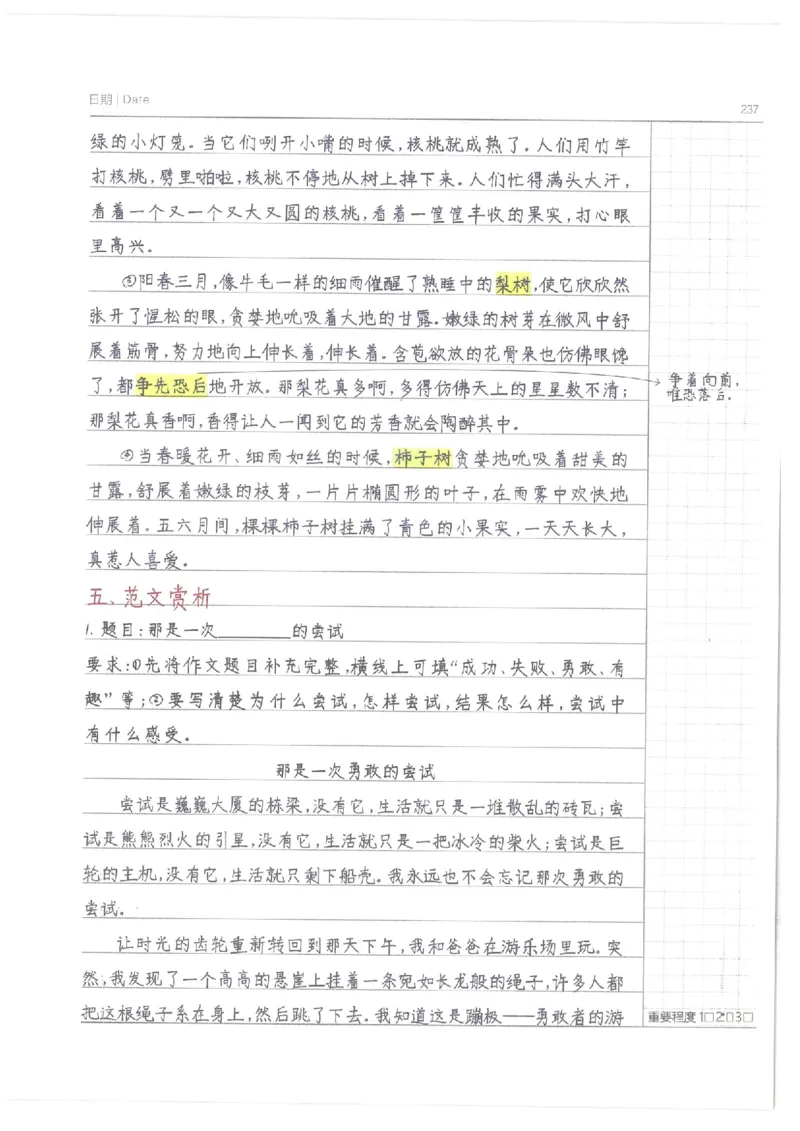 日期 | Date
237
绿的小灯笼。当它们咧开小嘴的时候,核桃就成熟了。人们用竹竿
打核桃,劈里啪啦,核桃不停地从树上掉下来。人们忙得满头大汗,
看着一个又一个又大又圆的核桃,看着一筐筐丰收的果实,打心眼
里高兴。
③阳春三月,像牛毛一样的细雨催醒了熟睡中的梨树,使它欣欣然
张开了惺松的眼,贪婪地吮吸着大地的甘露。嫩绿的树芽在微风中舒
展着筋骨,努力地向上伸长着,伸长着。含苞欲放的花骨朵也仿佛眼馋
了,都争先恐后地开放。那梨花真多啊,多得仿佛天上的星星数不清;
争着向前,
唯恐落后。
那梨花真香啊,香得让人一闻到它的芳香就会陶醉其中。
④当春暖花开、细雨如丝的时候,柿子树贪婪地吮吸着甜美的
甘露,舒展着嫩绿的枝芽,一片片椭圆形的叶子,在雨雾中欢快地
伸展着。五六月间,棵棵柿子树挂满了青色的小果实,一天天长大,
真惹人喜爱。
五、范文赏析
1. 题目:那是一次________的尝试
要求:①先将作文题目补充完整,横线上可填“成功、失败、勇敢、有
趣”等;②要写清楚为什么尝试,怎样尝试,结果怎么样,尝试中
有什么感受。
那是一次勇敢的尝试
尝试是巍巍大厦的栋梁,没有它,生活就只是一堆散乱的砖瓦;尝
试是熊熊烈火的引星,没有它,生活就只是一把冰冷的柴火;尝试是巨
轮的主机,没有它,生活就只剩下船壳。我永远也不会忘记那次勇敢的
尝试。
让时光的齿轮重新转回到那天下午,我和爸爸在游乐场里玩。突
然,我发现了一个高高的悬崖上挂着一条宛如长龙般的绳子,许多人都
把这根绳子系在身上,然后跳了下去。我知道这是蹦极——勇敢者的游
重要程度 1□2□3□